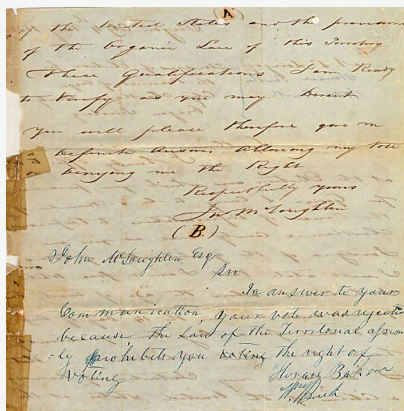 the United States and the provisions
of the Organic Law of this Territory
these Qualifications I am Ready
to Verify as you may Direct
You will please therefore give m
definite answer allowing my vote
denying me the Right
Respectfully yours
Jno McLoughlin
(B.)
John McLoughlin Esq
Sir
In answer to your
Communication your vote was reject
because the Law of the Territorial assem
-ly prohibits you the right of
Voting